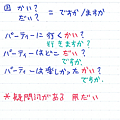 図 かい？
だい？ = ですか/ますか
パーティーに行くかい？
行きますか？
パーティーはどこだい？
ですか。
パーティーは楽しかったかい？
ですか。
* 疑問詞がある 用だい